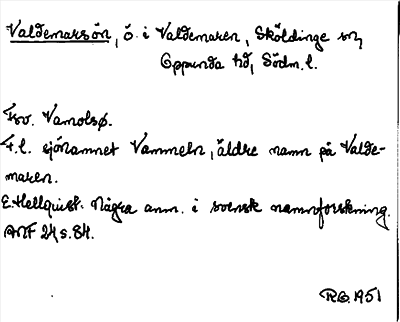 Valdemarsön, ö. i Valdemaren, Sköldinge sn,
Oppunda hd, Södm. l.
Fsv. Vamolsø.
F. l. sjönamnet Vammeln, äldre namn på Valde-
maren.
E. Hellquist. Några anm. i svensk namnforskning.
ANF 24 s. 84.
R.G. 1951